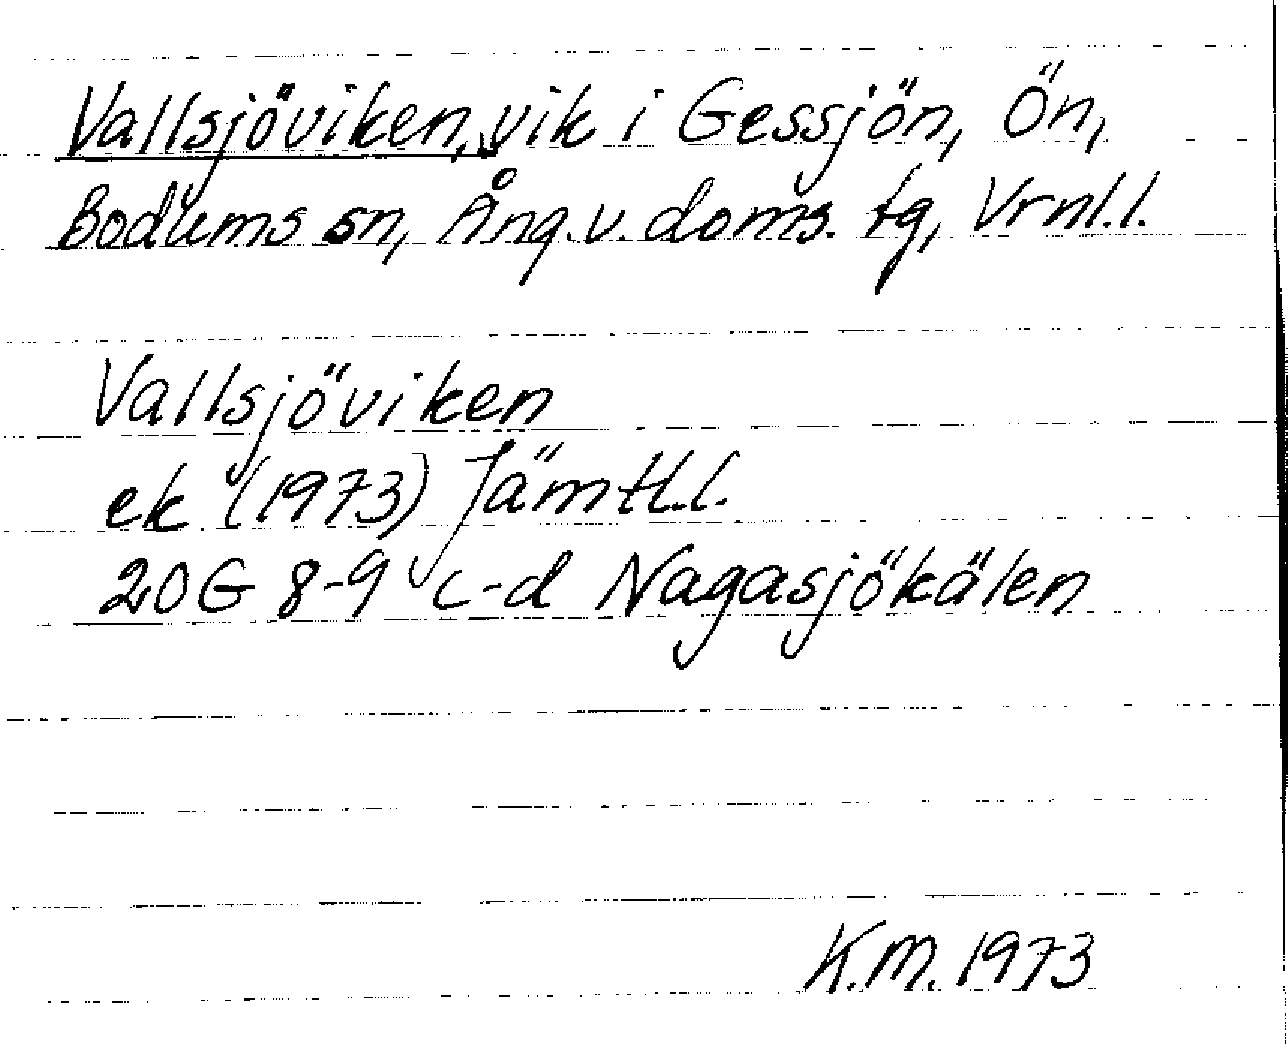 Vallsjöviken, vik i Gessjön, Ön,
Bodums sn, Ång.v. doms. tg, Vrnl.l.
Vallsjöviken
ek (1973) Jämtl.l.
20G 8-9 c-d Nagasjökälen
K.M. 1973